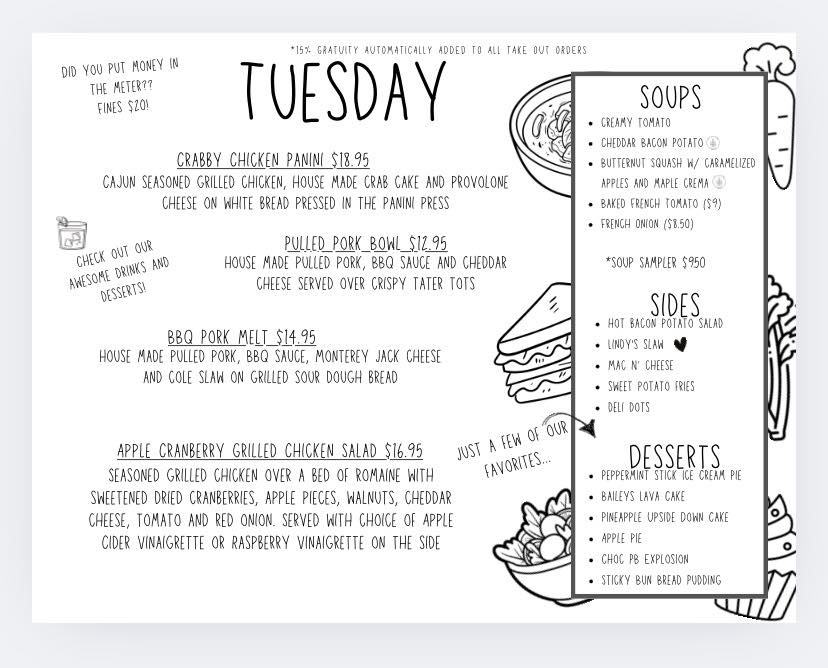 *15% GRATUITY AUTOMATICALLY ADDED TO ALL TAKE OUT ORDERS
DID YOU PUT MONEY IN
THE METER??
FINES $20!
TUESDAY
CRABBY CHICKEN PANINI $18.95
CAJUN SEASONED GRILLED CHICKEN, HOUSE MADE CRAB CAKE AND PROVOLONE
CHEESE ON WHITE BREAD PRESSED IN THE PANINI PRESS
CHECK OUT OUR
AWESOME DRINKS AND
DESSERTS!
PULLED PORK BOWL $12.95
HOUSE MADE PULLED PORK, BBQ SAUCE AND CHEDDAR
CHEESE SERVED OVER CRISPY TATER TOTS
BBQ PORK MELT $14.95
HOUSE MADE PULLED PORK, BBQ SAUCE, MONTEREY JACK CHEESE
AND COLE SLAW ON GRILLED SOUR DOUGH BREAD
APPLE CRANBERRY GRILLED CHICKEN SALAD $16.95
SEASONED GRILLED CHICKEN OVER A BED OF ROMAINE WITH
SWEETENED DRIED CRANBERRIES, APPLE PIECES, WALNUTS, CHEDDAR
CHEESE, TOMATO AND RED ONION. SERVED WITH CHOICE OF APPLE
CIDER VINAIGRETTE OR RASPBERRY VINAIGRETTE ON THE SIDE
JUST A FEW OF OUR
FAVORITES...
SOUPS
• CREAMY TOMATO
• CHEDDAR BACON POTATO
• BUTTERNUT SQUASH W/ CARAMELIZED
APPLES AND MAPLE CREMA
• BAKED FRENCH TOMATO ($9)
• FRENCH ONION ($8.50)
*SOUP SAMPLER $9.50
SIDES
• HOT BACON POTATO SALAD
• LINDY'S SLAW
• MAC N' CHEESE
• SWEET POTATO FRIES
• DELI DOTS
DESSERTS
• PEPPERMINT STICK ICE CREAM PIE
• BAILEYS LAVA CAKE
• PINEAPPLE UPSIDE DOWN CAKE
• APPLE PIE
• CHOC PB EXPLOSION
• STICKY BUN BREAD PUDDING